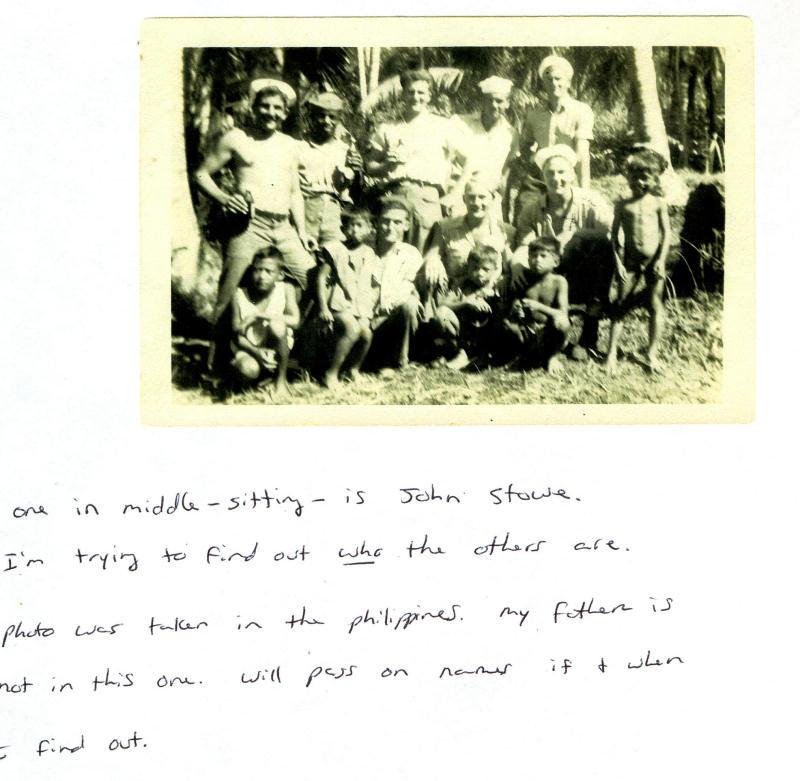 one in middle - sitting - is John Stowe.
I'm trying to find out who the others are.
photo was taken in the philippines. my father is
not in this one. will pass on names if & when
I find out.